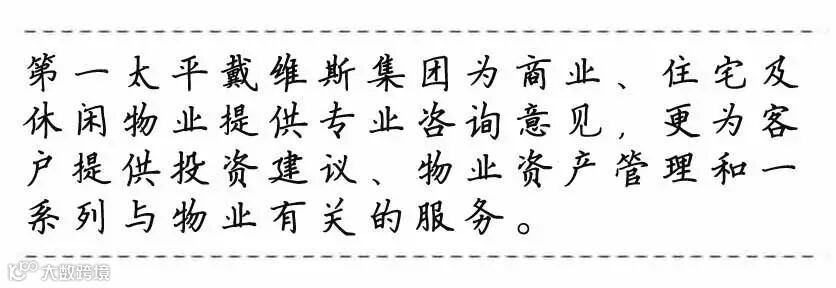 第一太平戴维斯集团为商业、住宅及
休闲物业提供专业咨询意见，更为客
户提供投资建议、物业资产管理和一
系列与物业有关的服务。
大数跨境